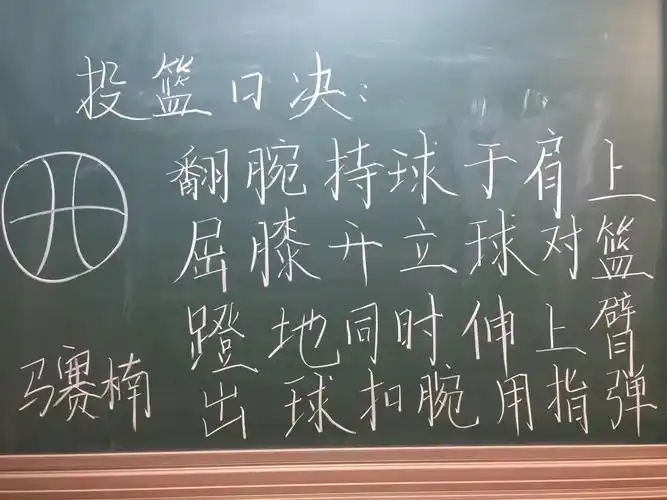 投篮口决：
翻腕持球于肩上
屈膝开立球对篮
蹬地同时伸上臂
出球扣腕用指弹
马赛楠